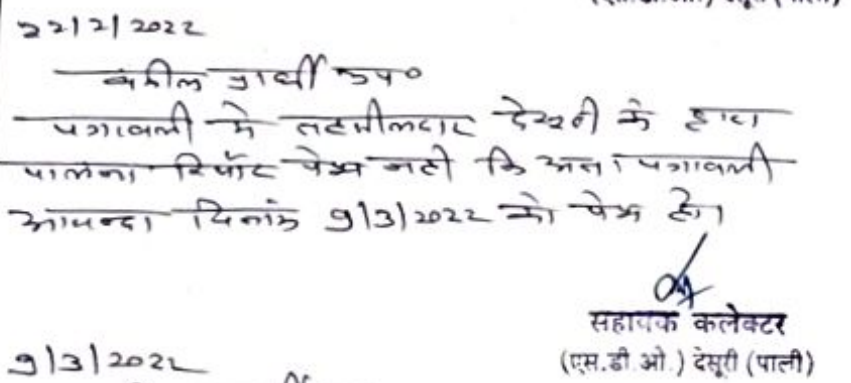 22/2/2022
वकील प्रार्थी उप०
पत्रावली मे तहसीलदार देसूरी के द्वारा
पालना रिपोर्ट पेश नही कि अतः पत्रावली
आयन्दा दिनांक 9/3/2022 को पेश हो।
सहायक कलेक्टर
(एस.डी.ओ.) देसूरी (पाली)
9/3/2022